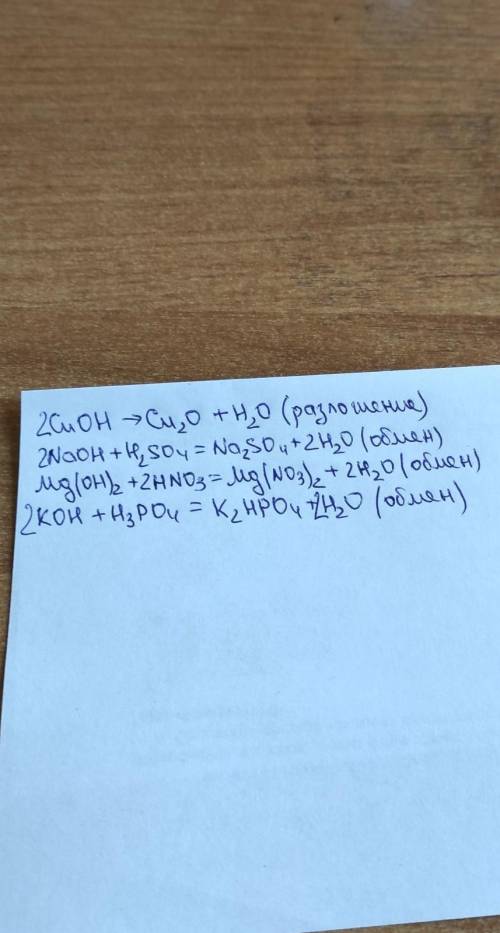 2CuOH → Cu₂O + H₂O (разложение)
2NaOH + H₂SO₄ = Na₂SO₄ + 2H₂O (обмен)
Mg(OH)₂ + 2HNO₃ = Mg(NO₃)₂ + 2H₂O (обмен)
2KOH + H₃PO₄ = K₂HPO₄ + 2H₂O (обмен)